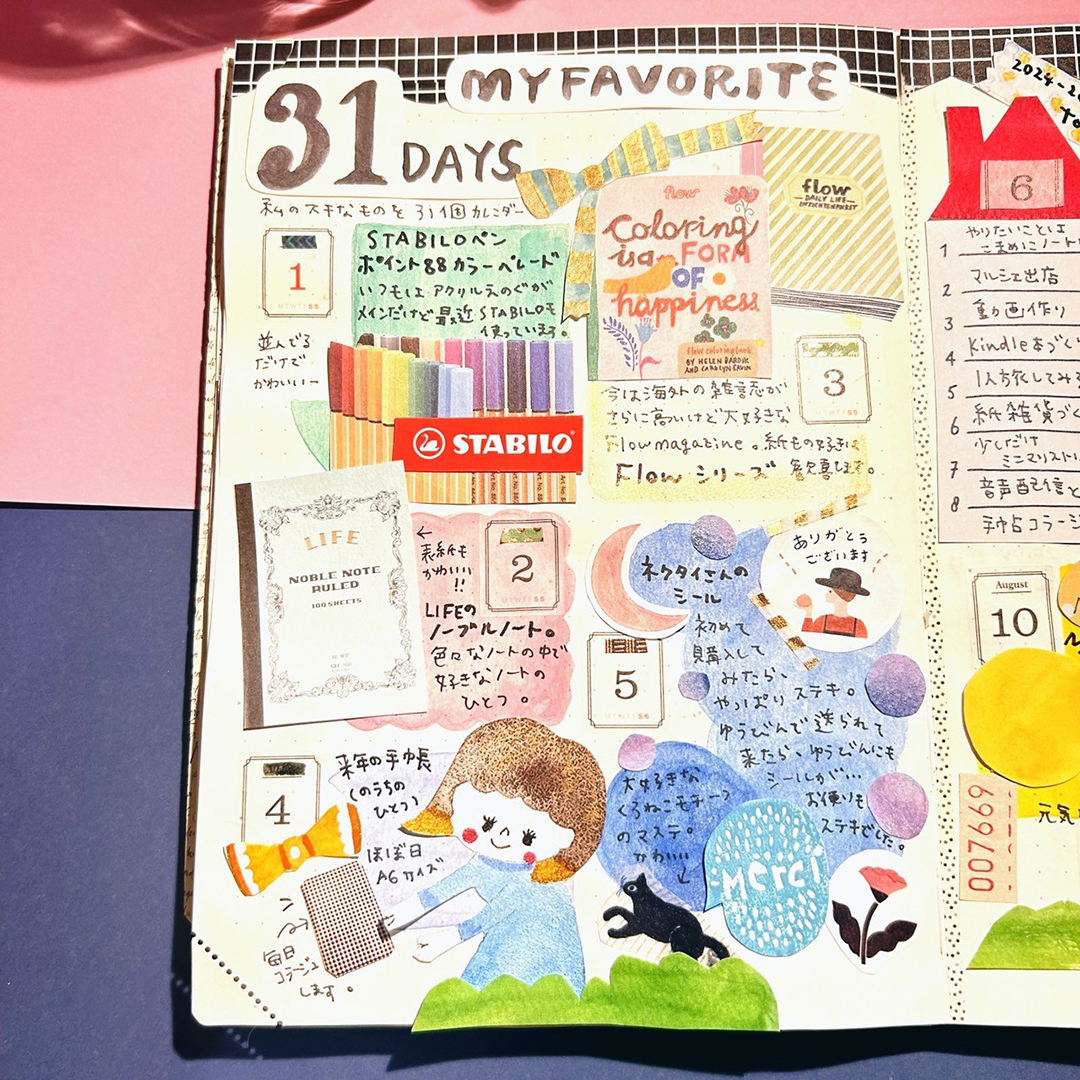 MY FAVORITE
31 DAYS
私のステキなものを31個カレンダー
1
MTWTFSS
STABILOペン
ポイント88カラーペレード
いつもは アクリルえのぐが
メインだけど最近STABILOを
使っています。
並んでる
だけで
かわいいー
STABILO
flow
Coloring
is a FORM
OF
happiness
flow coloring book
BY HELEN DARDIK
AND CAROLYN GAVIN
flow
DAILY LIFE
3
MTWTFSS
今は海外の雑誌が
さらに高いけど大好きな
Flow magazine。紙もの好きは
Flow シリーズ 歓喜します。
LIFE
NOBLE NOTE
RULED
100 SHEETS
←
表紙も
かわいい
!!
2
MTWTFSS
LIFEの
ノーブルノート。
色々なノートの中で
好きなノートの
ひとつ。
ネクタイさんの
シール
ありがとう
ございます
5
MTWTFSS
初めて
購入して
みたら、
やっぱり ステキ。
ゆうびんで送られて
来たら、ゆうびんにも
シールが…
お便りも
ステキでした。
4
来年の手帳
(のうちの
ひとつ)
ほぼ日
A6サイズ
毎日
コラージュ
します。
大好きな
くろねこモチーフ
のマステ。
かわいい
Merci
2024-20
6
1 やりたいことは
こまめにノート
2 マルシェ出店
3 動画作り
4 Kindle本づく
5 1人旅してみる
6 紙雑貨づく
7 少しだけ
ミニマリスト
8 音声配信と
手帖コラージ
August
10
007669
元気